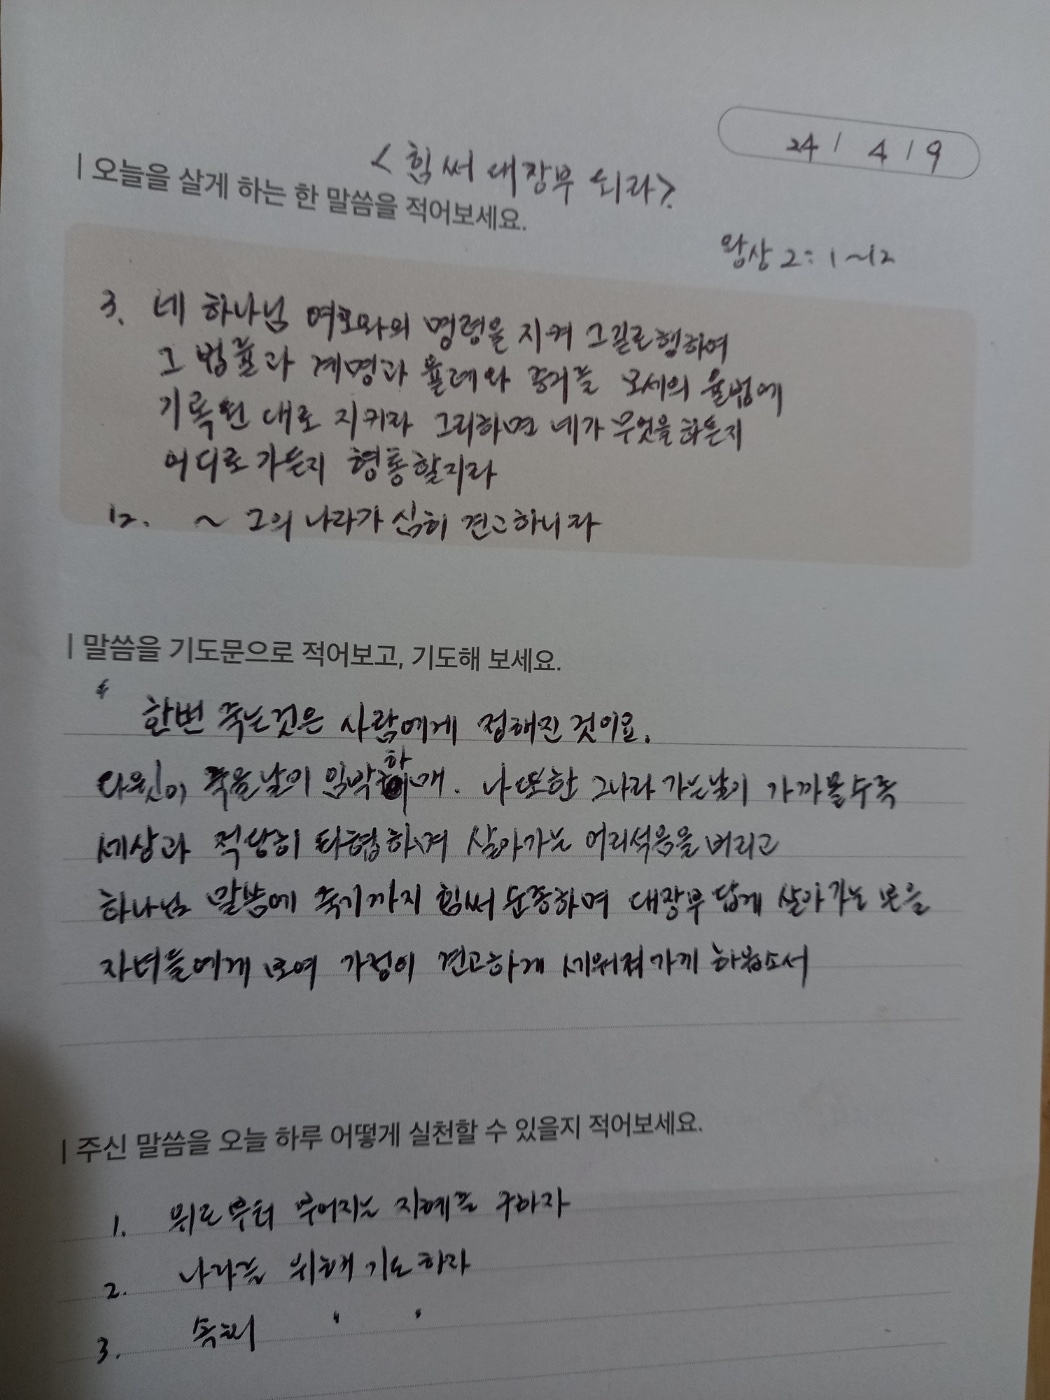 24 / 4 / 9
<힘써 대장부 되라>
| 오늘을 살게 하는 한 말씀을 적어보세요.
왕상 2: 1~12
3. 네 하나님 여호와의 명령을 지켜 그길로행하여
그 법률과 계명과 율례와 증거를 모세의 율법에
기록된 대로 지키라 그리하면 네가 무엇을하든지
어디로가든지 형통할지라
12. ~ 그의 나라가 심히 견고하니라
| 말씀을 기도문으로 적어보고, 기도해 보세요.
한번 죽는것은 사람에게 정해진 것이요.
다윗이 죽을날이 임박하매. 나 또한 그나라 가는날이 가까울수록
세상과 적당히 타협하며 살아가는 어리석음을 버리고
하나님 말씀에 죽기까지 힘써 순종하며 대장부 답게 살아가는 본을
자녀들에게 보여 가정이 견고하게 세워져가게 하옵소서
| 주신 말씀을 오늘 하루 어떻게 실천할 수 있을지 적어보세요.
1. 위로부터 부어지는 지혜를 구하자
2. 나라를 위해 기도하라
3. 〃 〃